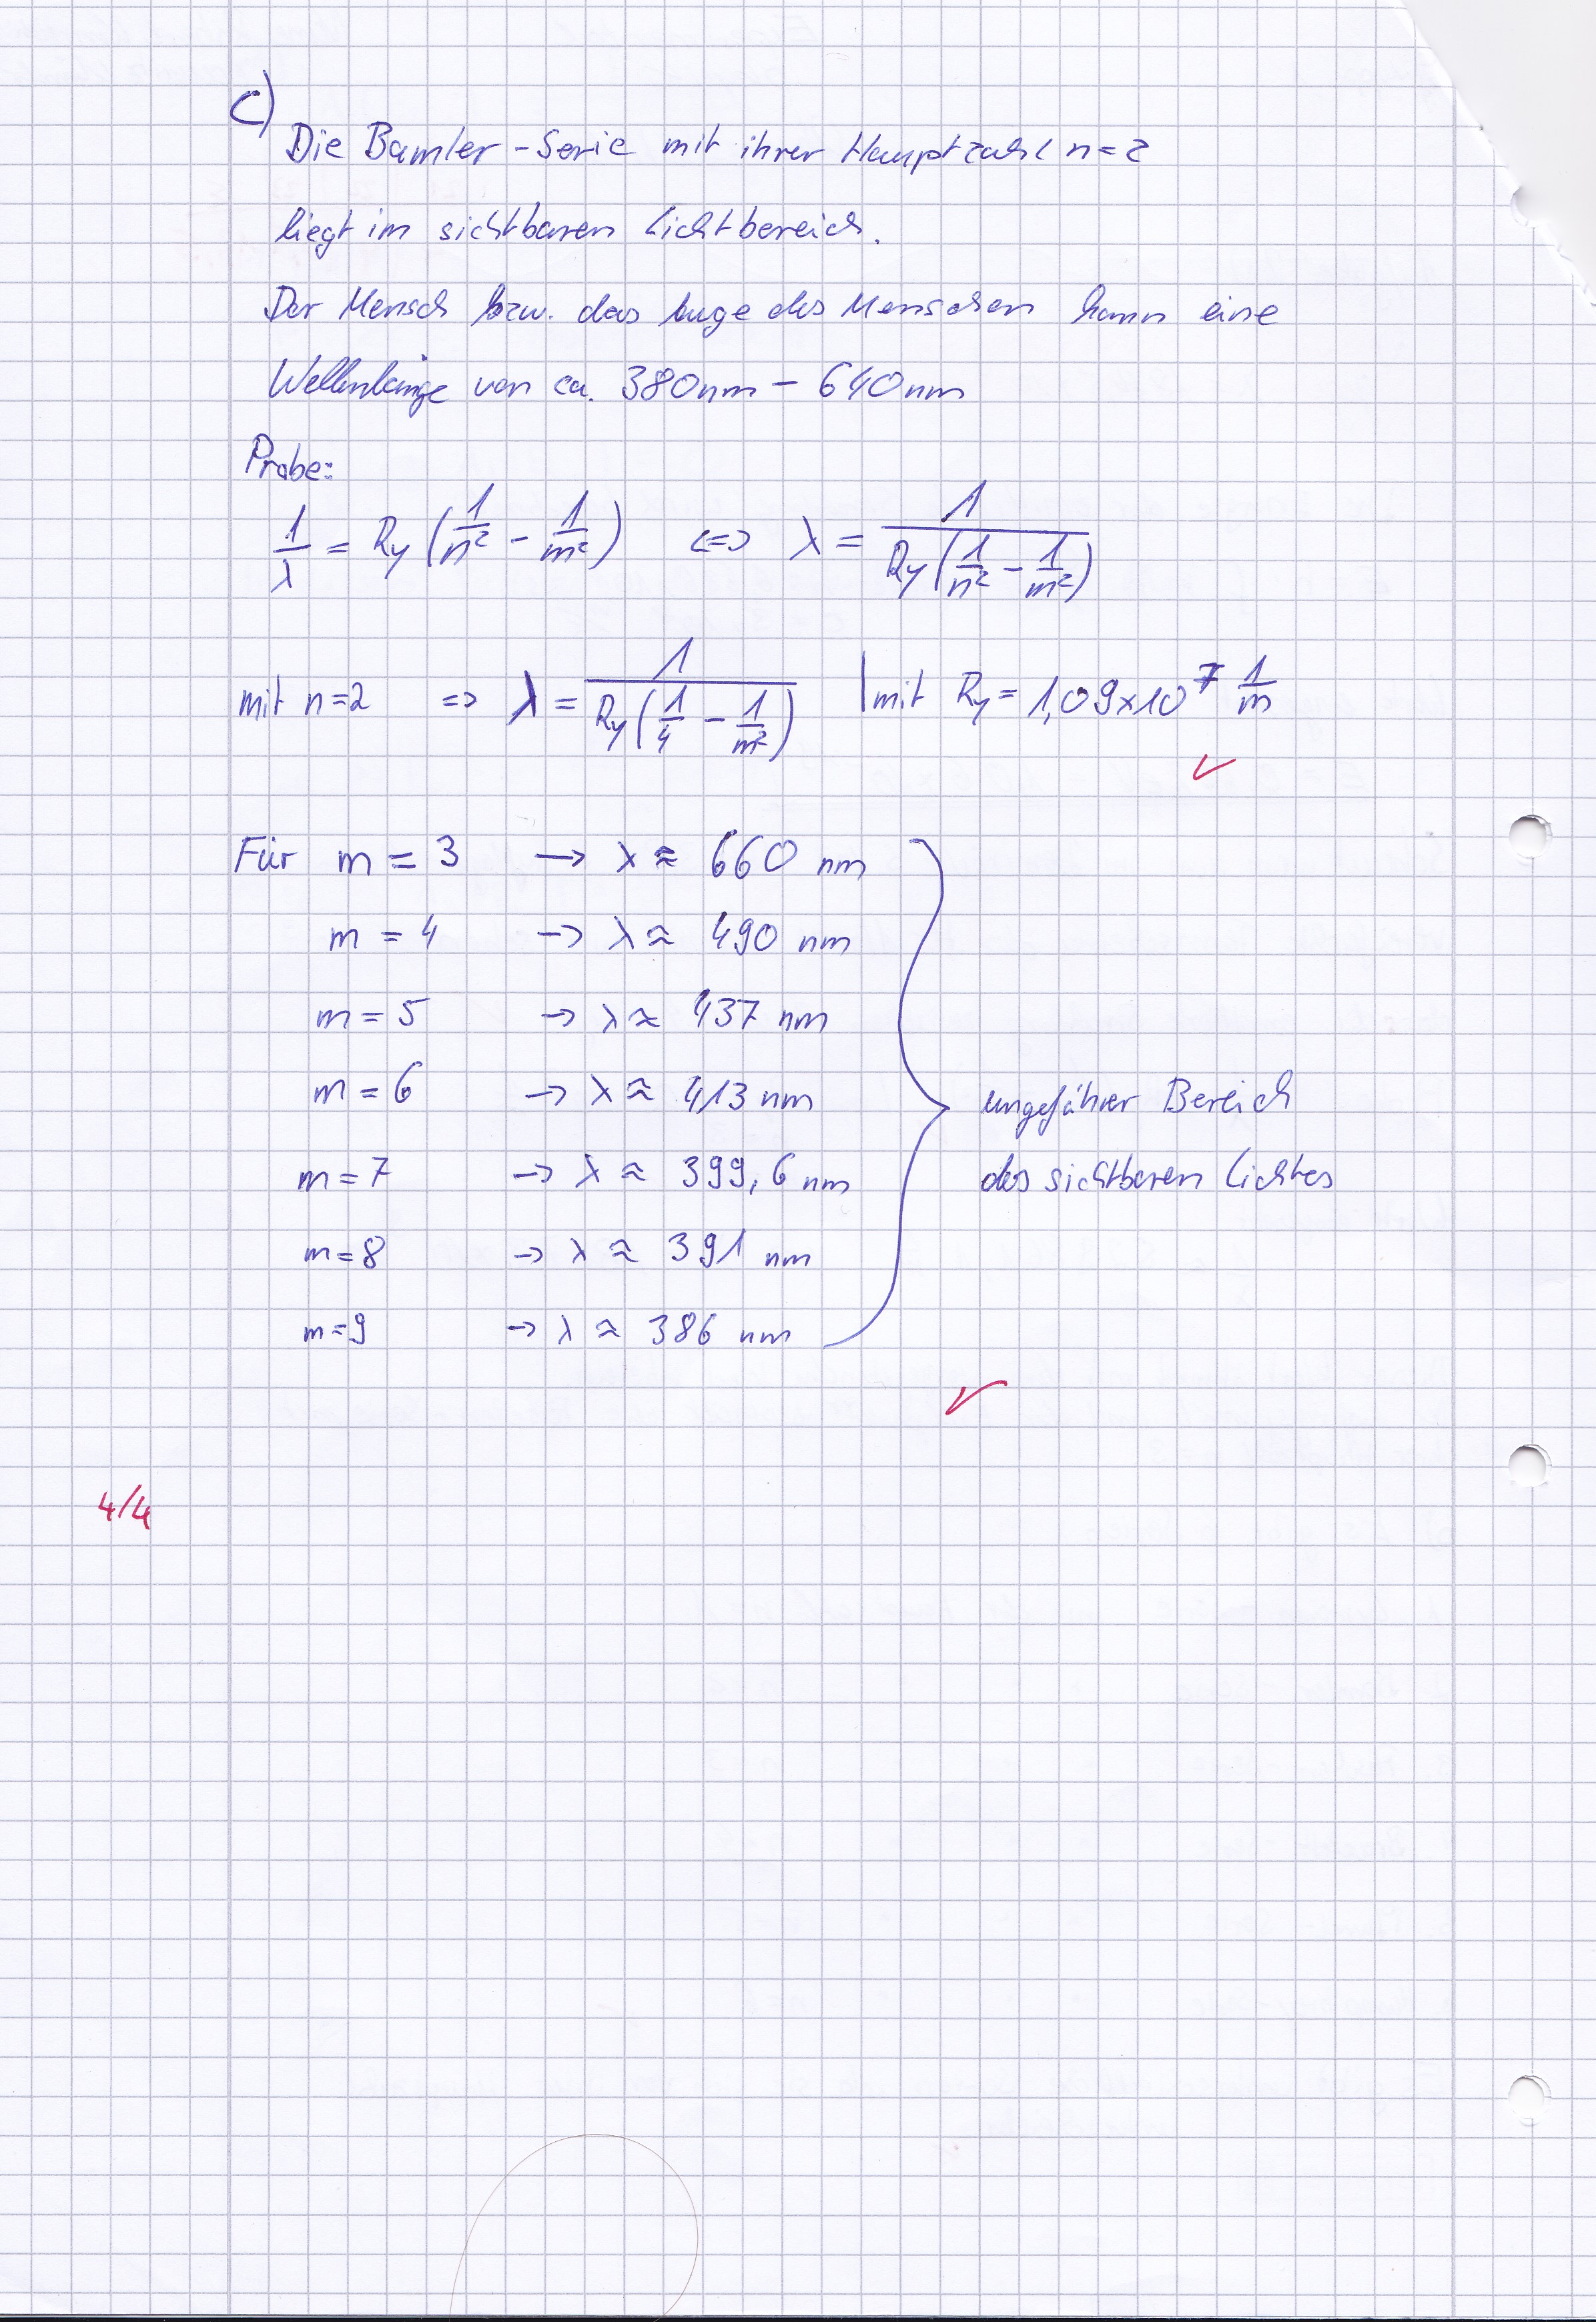 c)
Die Bamler-Serie mit ihrer Hauptzahl n=2
liegt im sichtbaren Lichtbereich.
Der Mensch bzw. das Auge des Menschen kann eine
Wellenlänge von ca. 380nm - 640nm
Probe:
1/λ = Ry (1/n² - 1/m²) <=> λ = 1/(Ry(1/n² - 1/m²))
mit n=2 => λ = 1/(Ry(1/4 - 1/m²)) | mit Ry = 1,09x10⁷ 1/m
Für m = 3 → λ ≈ 660 nm
m = 4 → λ ≈ 490 nm
m = 5 → λ ≈ 437 nm
m = 6 → λ ≈ 413 nm
ungefährer Bereich
m = 7 → λ ≈ 399,6 nm
des sichtbaren Lichtes
m = 8 → λ ≈ 391 nm
m = 9 → λ ≈ 386 nm
4/4